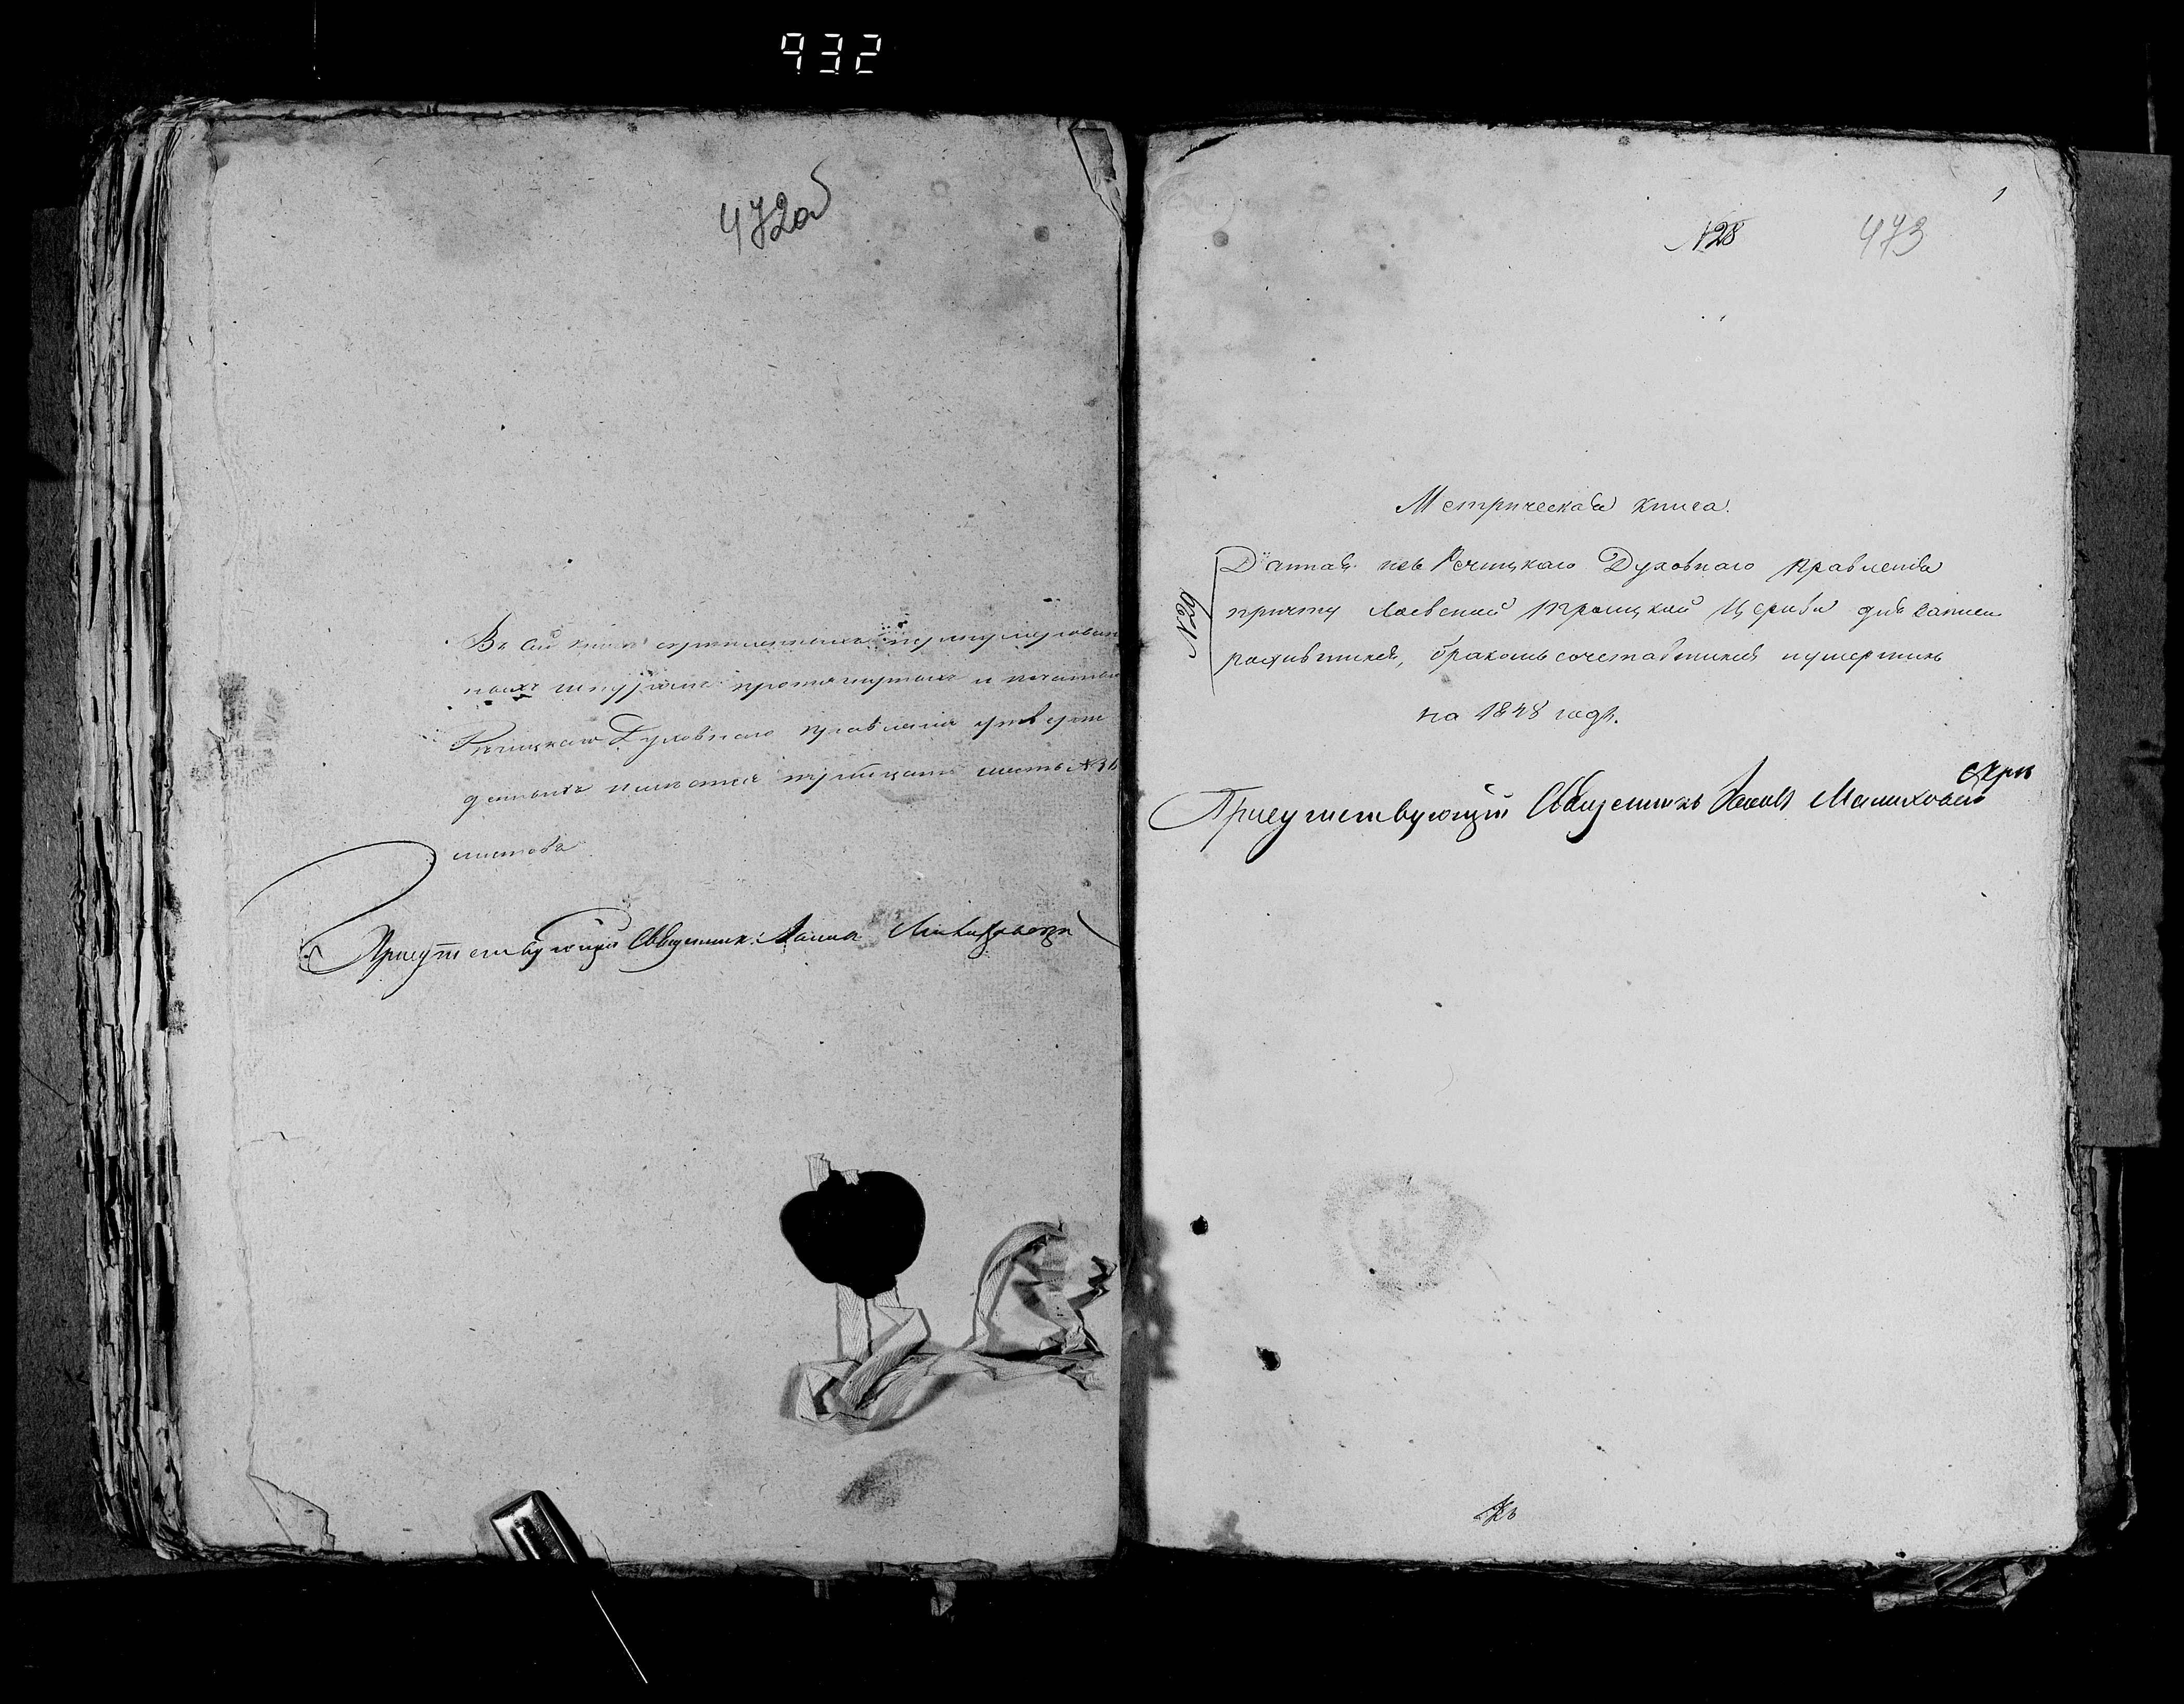 932
472об
Въ сей книгѣ скрѣпленныхъ пронумерован
ныхъ шнуромъ протянутыхъ и печатью
Рѣчицкаго Духовнаго Правленія утверж
денныхъ имѣется тритцать шесть № 36
листовъ
Присутствующій Священник:
1
№ 28
473
Метрическая книга.
Данная изъ Речицкаго Духовнаго Правленія
причту Лоевской Троицкой Церкви для записи
родившихся, бракомъ сочетавшихся и умершихъ
на 1848 годъ.
Присутствующій Священникъ